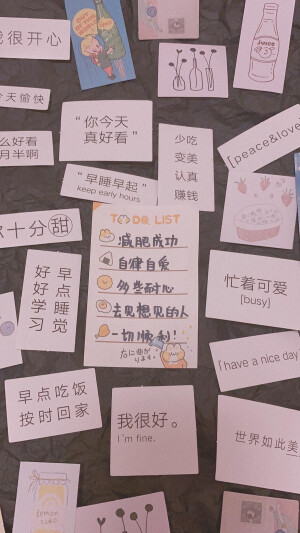 我很开心
JUICE
今天愉快
"你今天
真好看"
少吃
变美
认真
赚钱
么好看
月半啊
[peace&love
"早睡早起"
keep early hours
TO DO LIST
减肥成功
自律自爱
多些耐心
去见想见的人
一切顺利!
你十分甜
右に曲が
ります。
好好学习
早点睡觉
忙着可爱
[busy]
[have a nice day
早点吃饭
按时回家
我很好。
I'm fine.
世界如此美
lemon